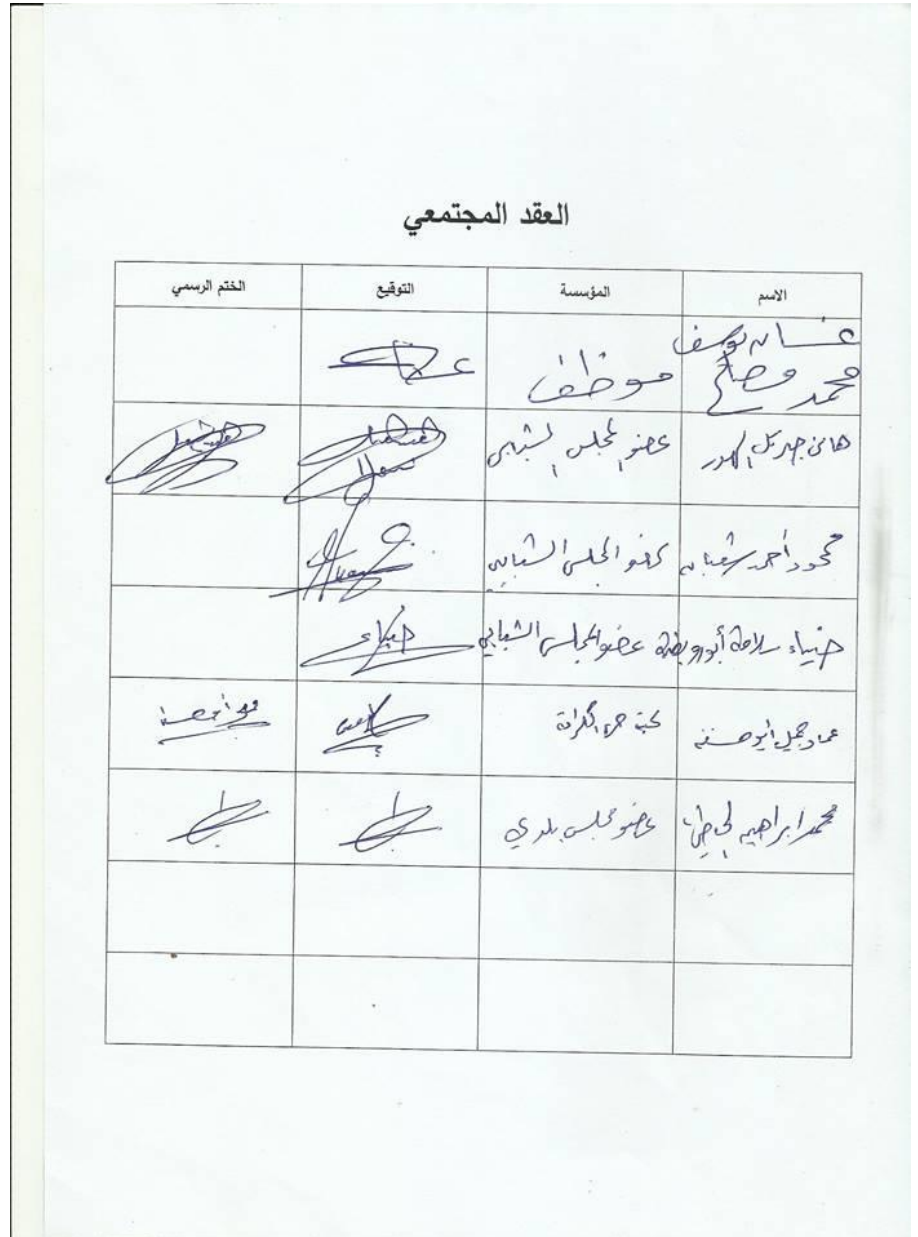 العقد المجتمعي
الاسم المؤسسة التوقيع الختم الرسمي
غسان يوسف
محمد مصلح موظف
هاني جبريل عضو المجلس الشبابي
محمود أحمد شعبان عضو المجلس الشبابي
ضياء سلامة أبو رويضة عضو المجلس الشبابي ضياء
عماد جميل أبو حسنة لجنة
محمد ابراهيم عضو مجلس بلدي